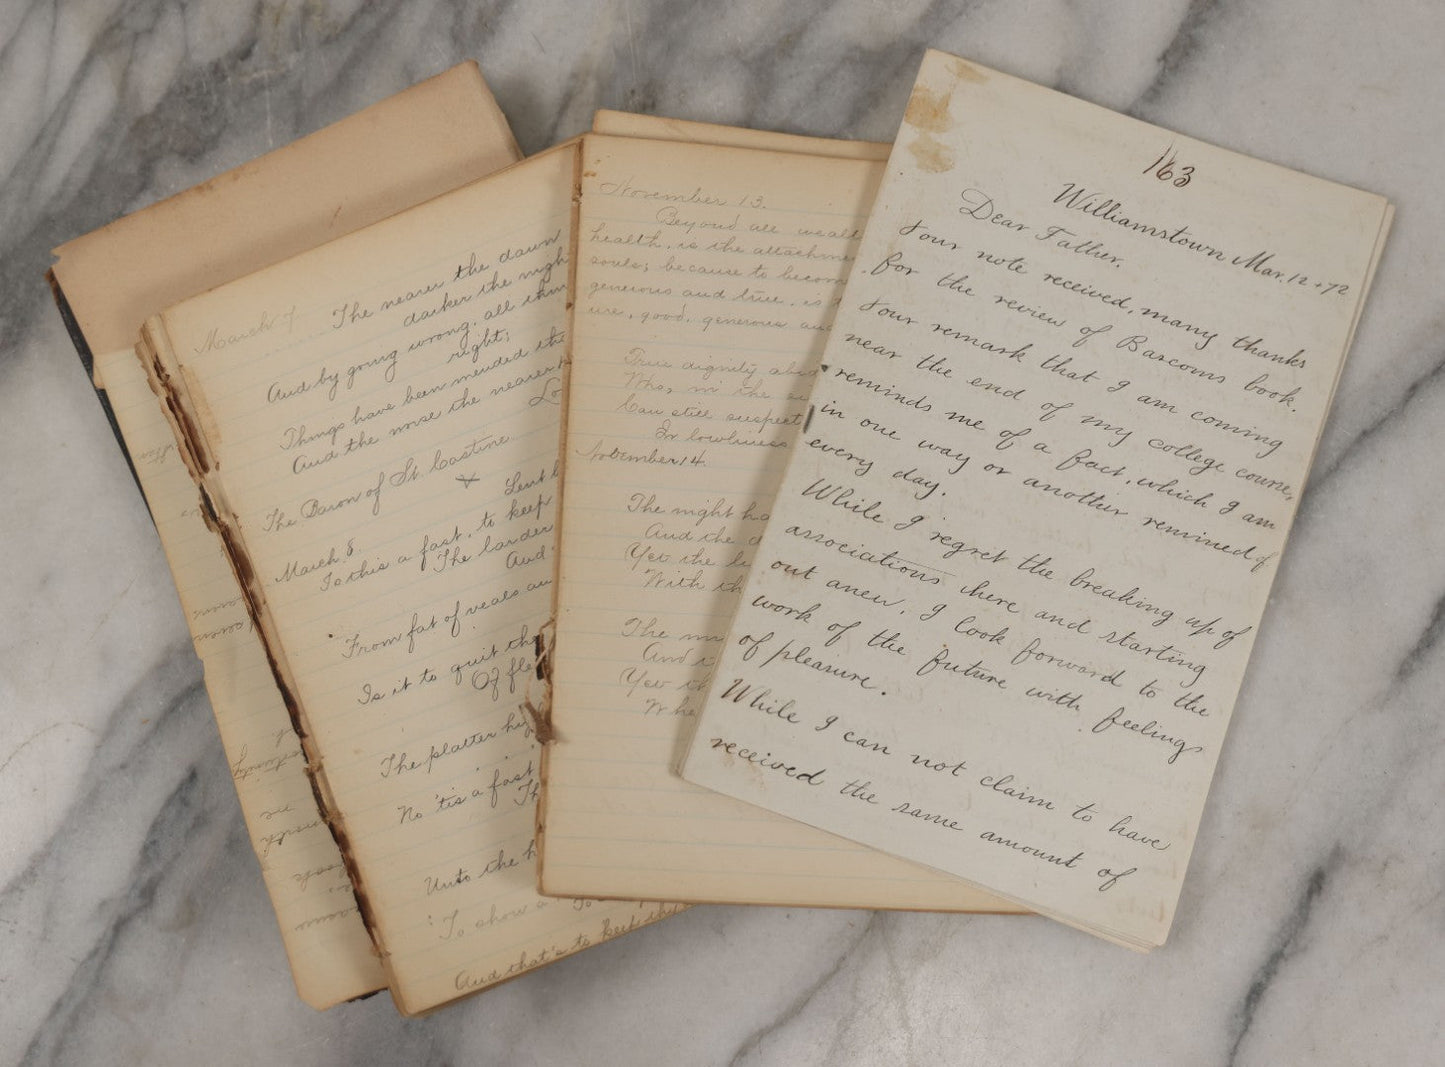 March 7
The nearer the dawn
darker the nigh
And by going wrong, all thin
right;
Things have been mended tha
And the worse the nearer
Lo
The Baron of St. Castine.
March 8.
Is this a fast, to keep
The larder
And
From fat of veals an
Is it to quit the
Of fle
The platter hig
No 'tis a fast
Th
Unto the h
To show a
And that's to keep thy
November 13.
Beyond all wealt
health, is the attachmen
souls; because to becom
generous and true, is
ure, good, generous and
True dignity abid
Who, in the si
Can still suspect
In lowliness
November 14.
The night ha
And the d
Yet the li
With th
The mi
And
Yet th
Whe
163
Williamstown Mar. 12 + 72
Dear Father.
Your note received, many thanks
for the review of Barcoms book.
Your remark that I am coming
near the end of my college course,
reminds me of a fact, which I am
in one way or another remined of
every day.
While I regret the breaking up of
associations here and starting
out anew, I look forward to the
work of the future with feelings
of pleasure.
While I can not claim to have
received the same amount of